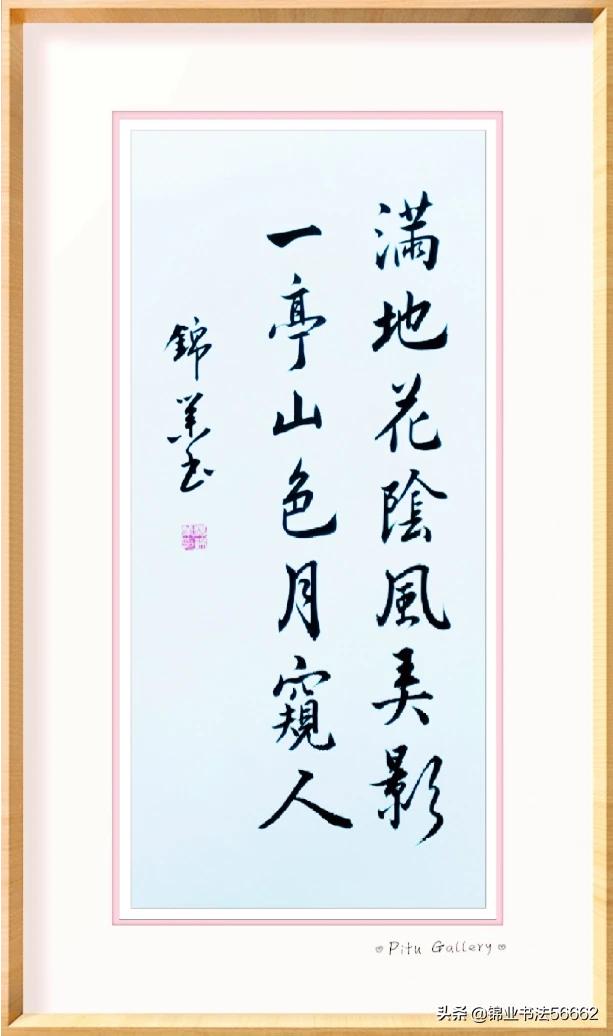 滿地花陰風弄影
一亭山色月窺人
錦業书
Pitu Gallery
头条 @锦业书法56662